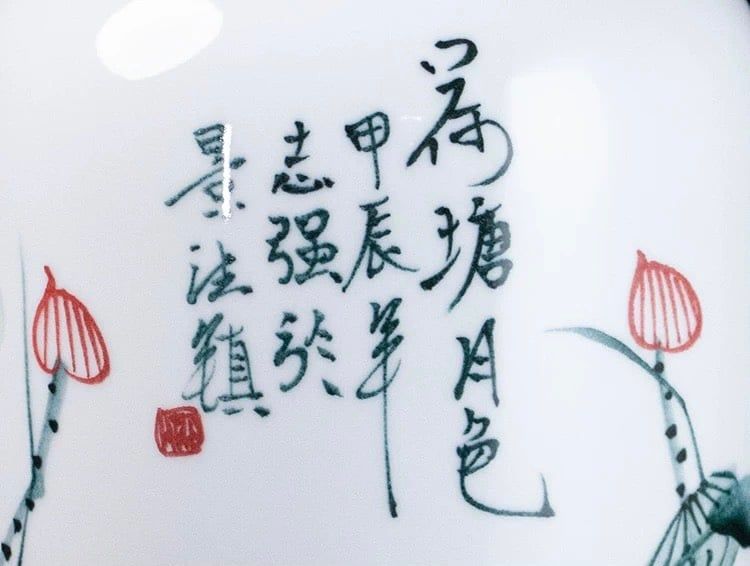 荷塘月色
甲辰年
志强於
景德鎮